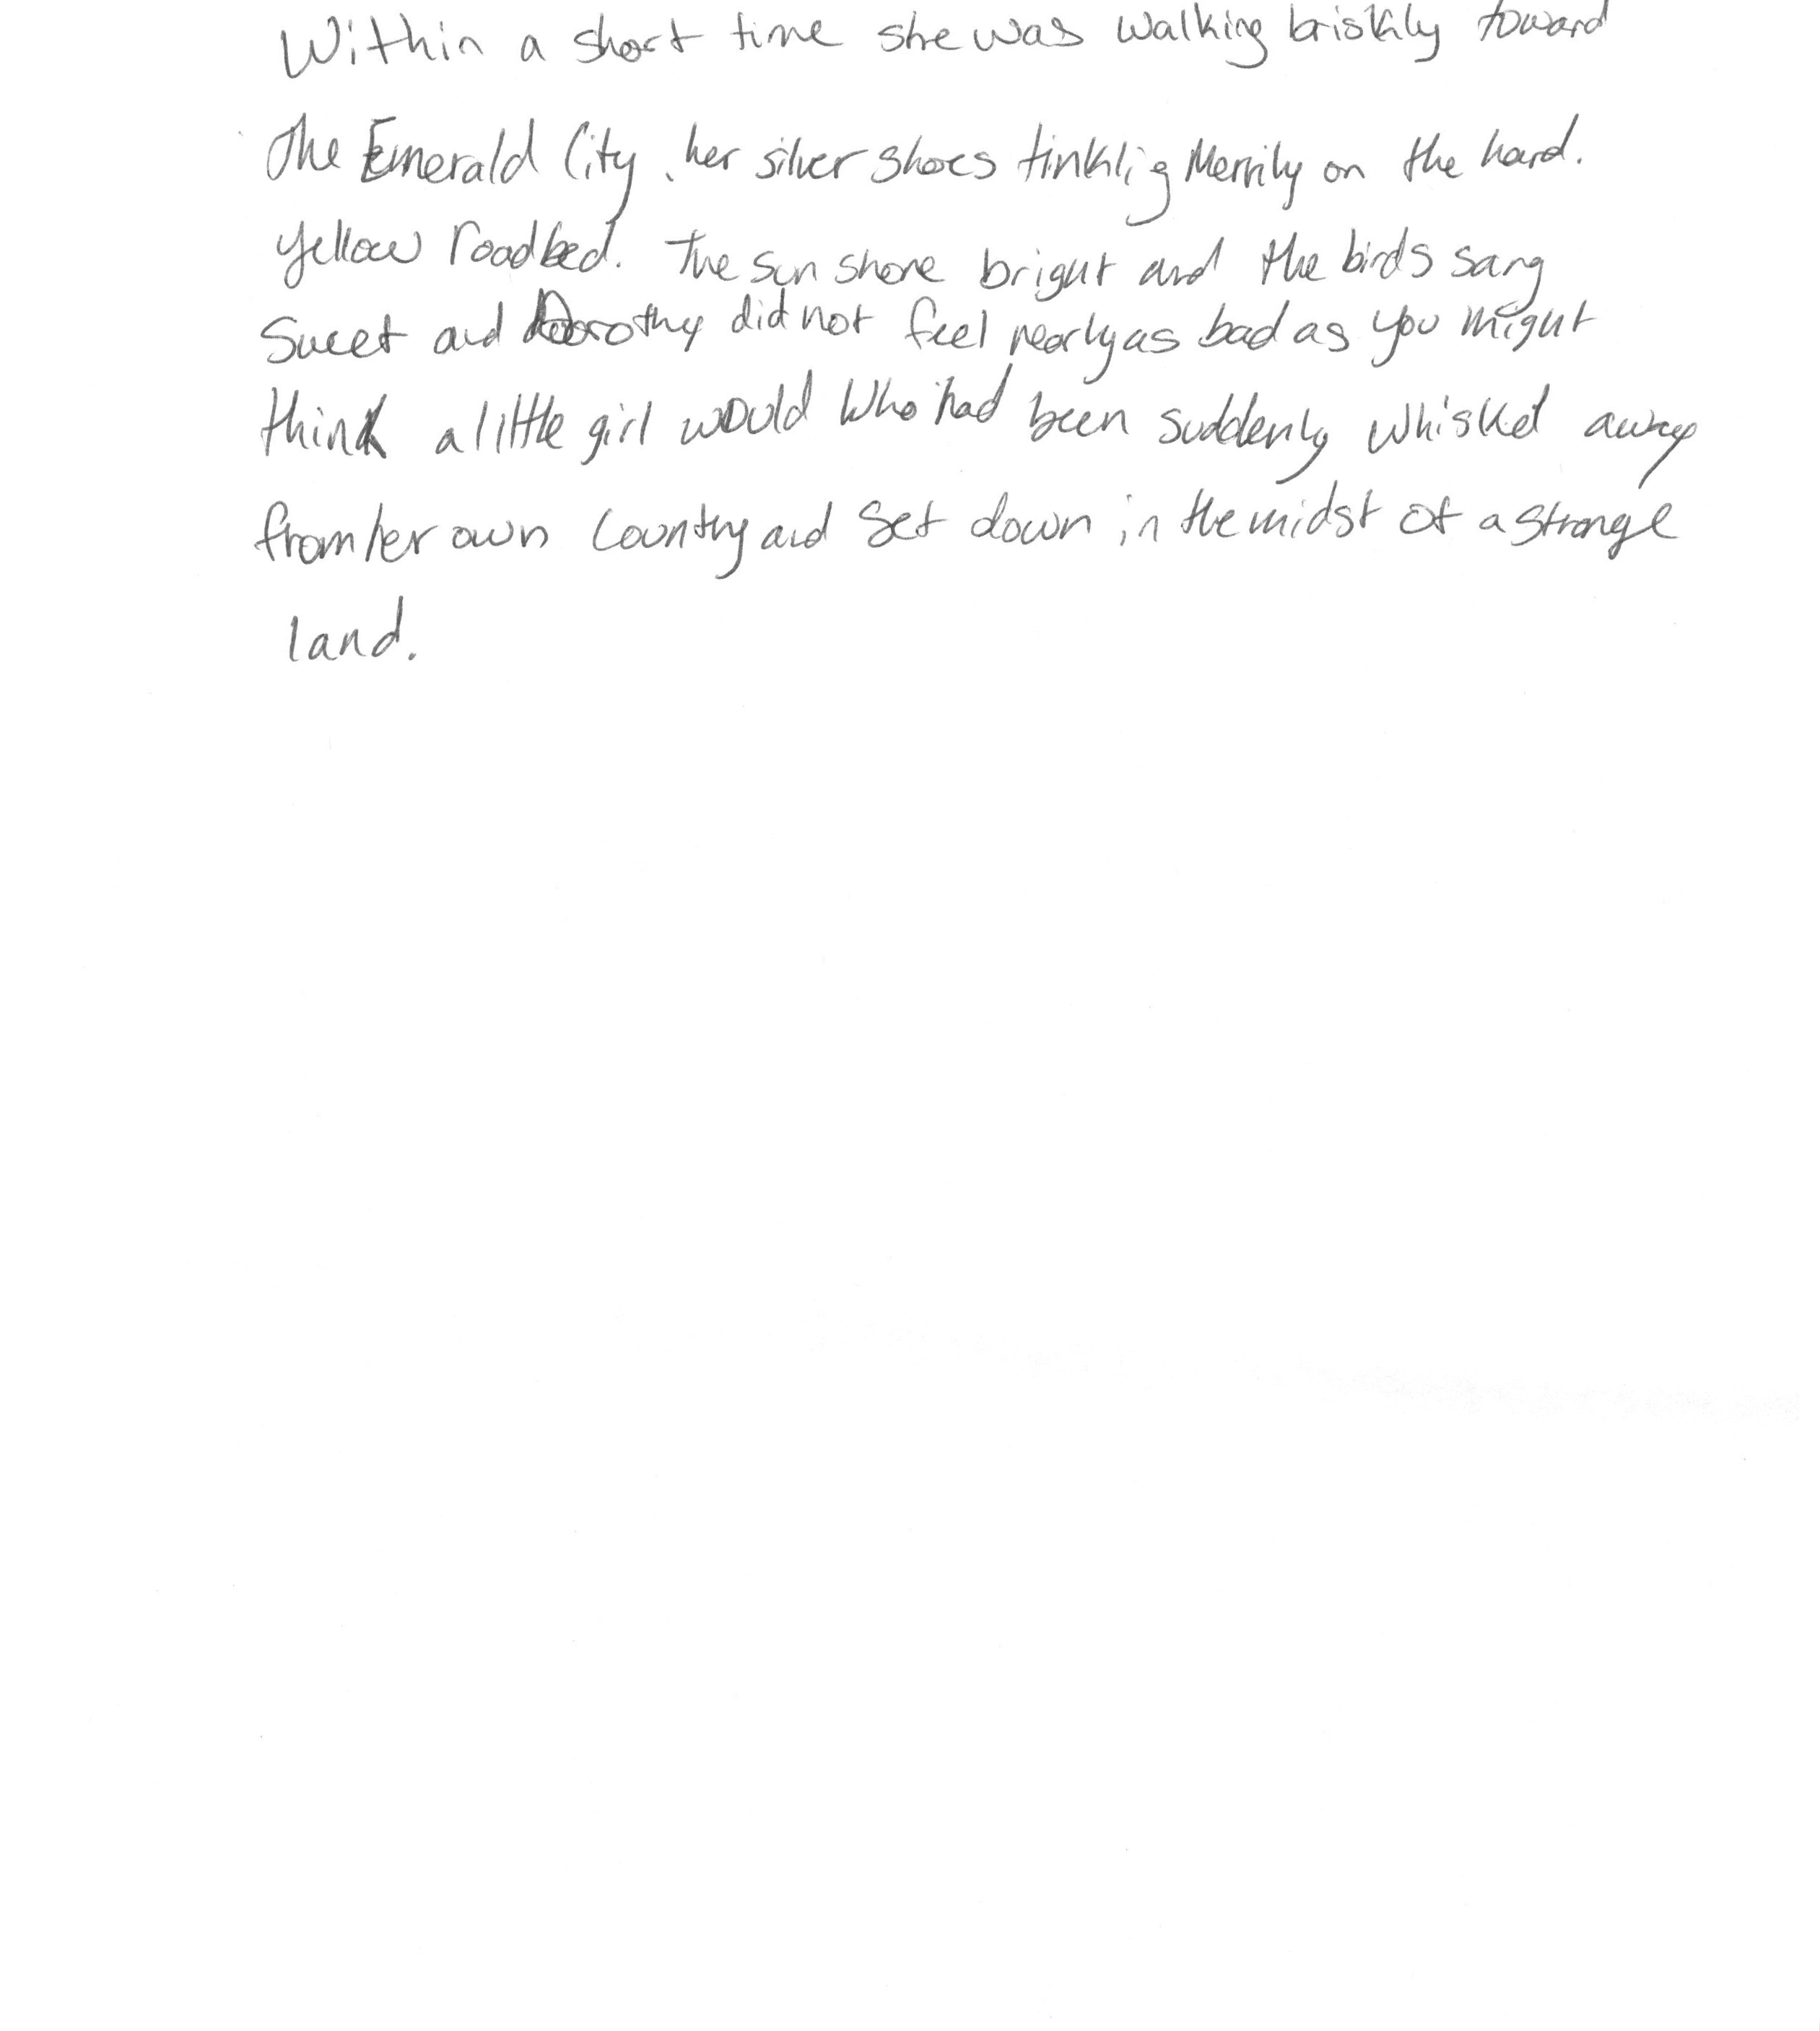 Within a short time she was walking briskily toward
The Emerald City, her silver shoes tinklig Merrily on the hard.
yellow roadbed. The sun shone bright and the birds sang
Sweet and Dorothy did not feel nearly as bad as you might
think a little girl would who had been suddenly whisked away
from her own country and set down in the midst of a strange
land.